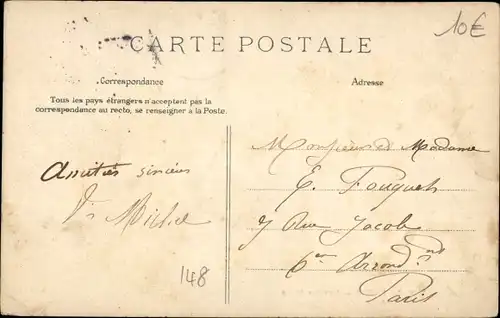 10€
CARTE POSTALE
Correspondance
Adresse
Tous les pays étrangers n'acceptent pas la
correspondance au recto, se renseigner à la Poste.
Amitiés sincères
Michel
148
Monsieur et Madame
E. Fouquet
7 Rue Jacob
6me Arrondisnt
Paris